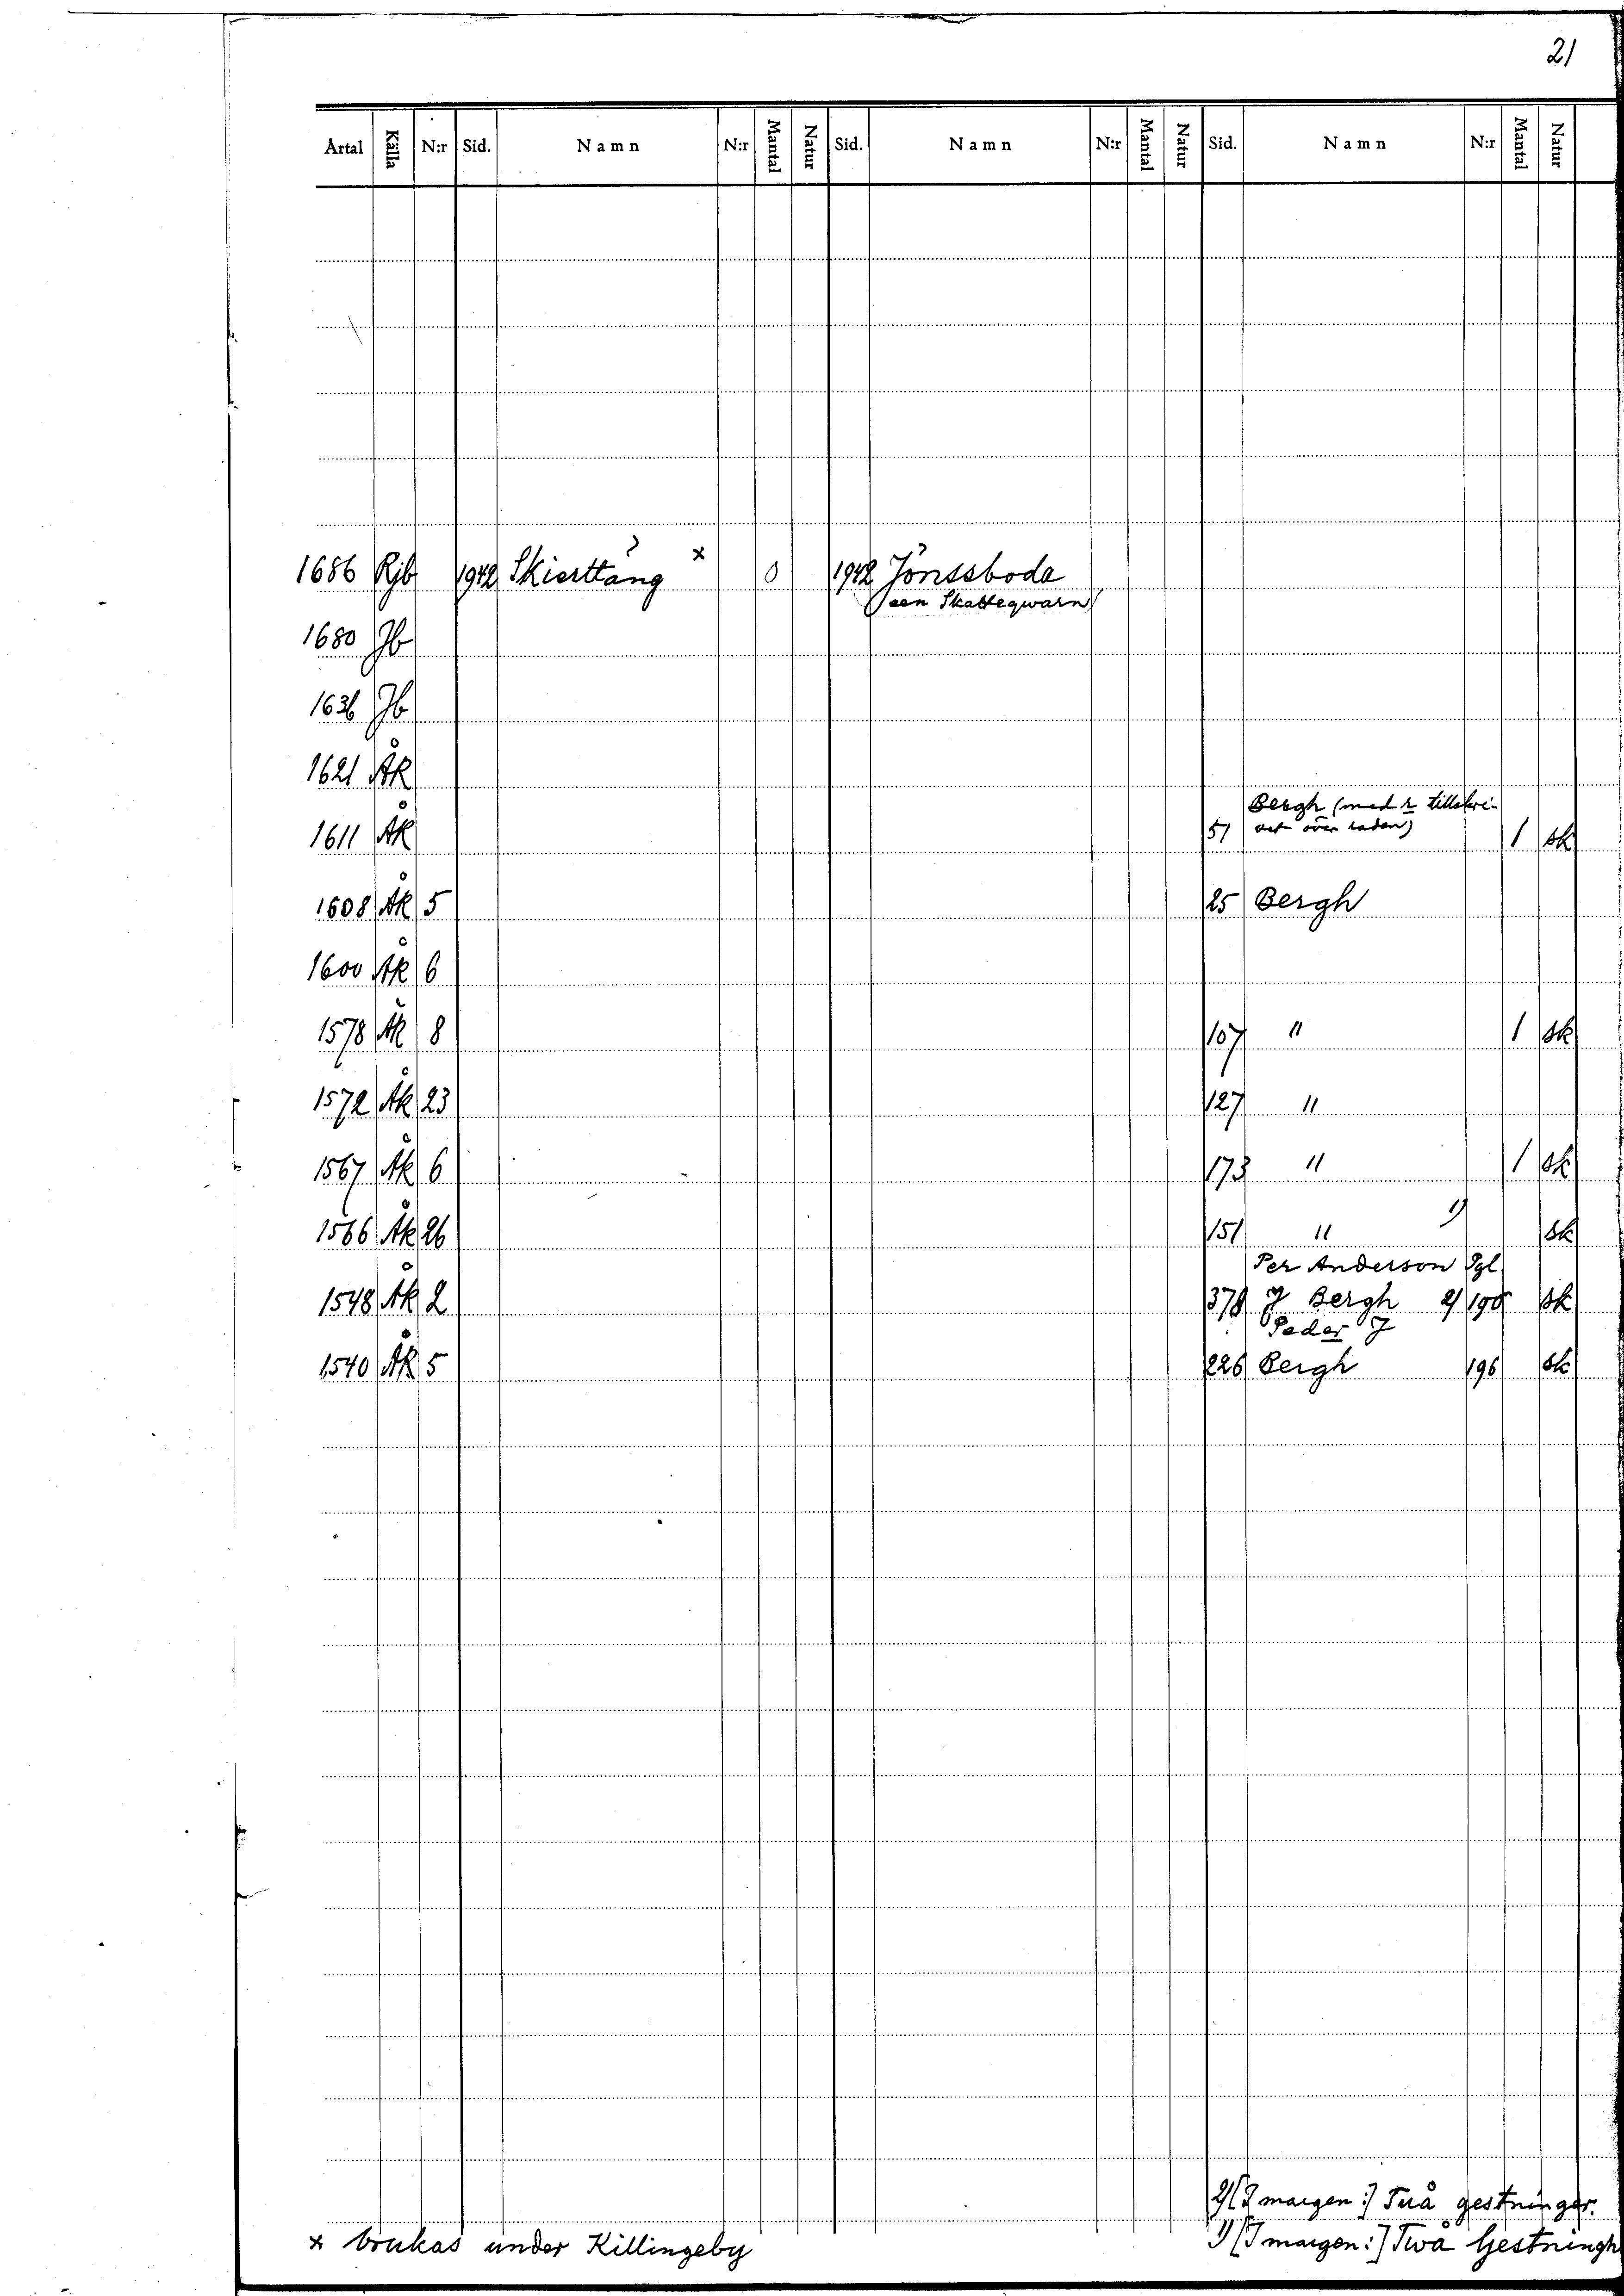 21
Årtal Källa N:r Sid. Namn N:r Mantal Natur Sid. Namn N:r Mantal Natur Sid. Namn N:r Mantal Natur
1686 Rjb 1942 Skierttång x 0 1942 Jönssboda
(een Skatteqwarn)
1680 Jb
1636 Jb
1621 ÅK
Bergh (med r tillskri-
1611 ÅK 51 vet över raden) 1 sk
1608 ÅK 5 25 Bergh
1600 ÅK 6
1578 ÅK 8 107 " 1 sk
1572 ÅK 23 127 "
1567 ÅK 6 173 " 1 sk
1566 ÅK 26 151 " 1) sk
Per Anderson Pgl
1548 ÅK 2 378 J Bergh 2) 190 sk
Peder J
1540 ÅK 5 226 Bergh 196 sk
2) [I margen:] Tuå gestninger.
x brukas under Killingeby 1) [I margen:] Twå Gestningh